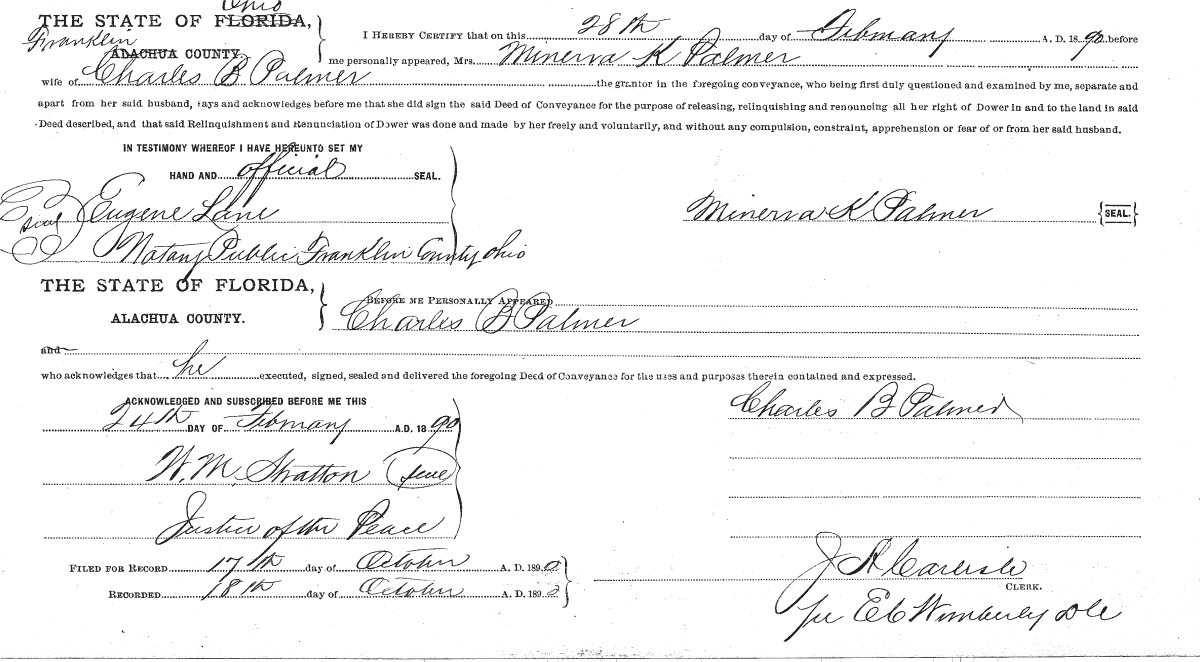 Ohio
THE STATE OF FLORIDA,
Franklin
ALACHUA COUNTY.
I HEREBY CERTIFY that on this 28th day of February A. D. 1890 before
me personally appeared, Mrs. Minerva K Palmer
wife of Charles B Palmer the grantor in the foregoing conveyance, who being first duly questioned and examined by me, separate and
apart from her said husband, says and acknowledges before me that she did sign the said Deed of Conveyance for the purpose of releasing, relinquishing and renouncing all her right of Dower in and to the land in said
Deed described, and that said Relinquishment and Renunciation of Dower was done and made by her freely and voluntarily, and without any compulsion, constraint, apprehension or fear of or from her said husband.
IN TESTIMONY WHEREOF I HAVE HEREUNTO SET MY
HAND AND official SEAL.
Seal Eugene Lane
Minerva K Palmer {SEAL.}
Notary Public, Franklin County Ohio
THE STATE OF FLORIDA,
ALACHUA COUNTY.
BEFORE ME PERSONALLY APPEARED
Charles B Palmer
and
who acknowledges that he executed, signed, sealed and delivered the foregoing Deed of Conveyance for the uses and purposes therein contained and expressed.
ACKNOWLEDGED AND SUBSCRIBED BEFORE ME THIS
24th DAY OF February A.D. 1890
Charles B Palmer
W. M. Stratton
Justice of the Peace
FILED FOR RECORD 17th day of October A. D. 1890
RECORDED 18th day of October A. D. 1890
J A Carlisle
CLERK.
per E C Wimberly D C